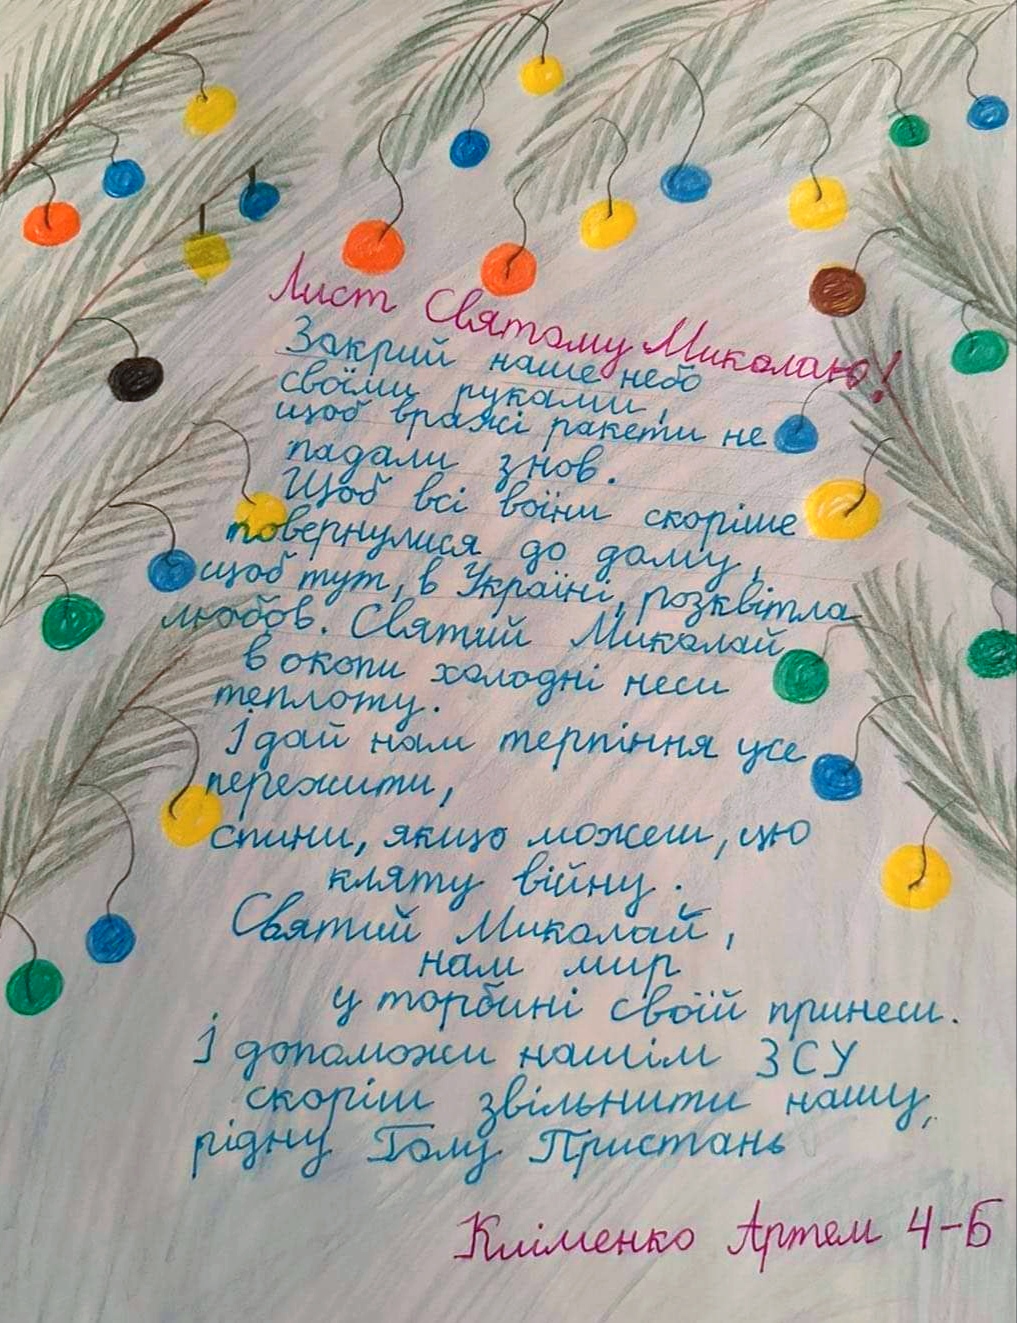 Лист Святому Миколаю!
Закрий наше небо
своїми руками,
щоб вражі ракети не
падали знов.
Щоб всі воїни скоріше
повернулися до дому,
щоб тут, в Україні, розквітла
любов. Святий Миколай
в окопи холодні неси
теплоту.
І дай нам терпіння усе
пережити,
спини, якщо можеш, цю
кляту війну.
Святий Миколай,
нам мир
у торбині своїй принеси.
І допоможи нашім ЗСУ
скоріш звільнити нашу,
рідну Голу Пристань
Кліменко Артем 4-Б